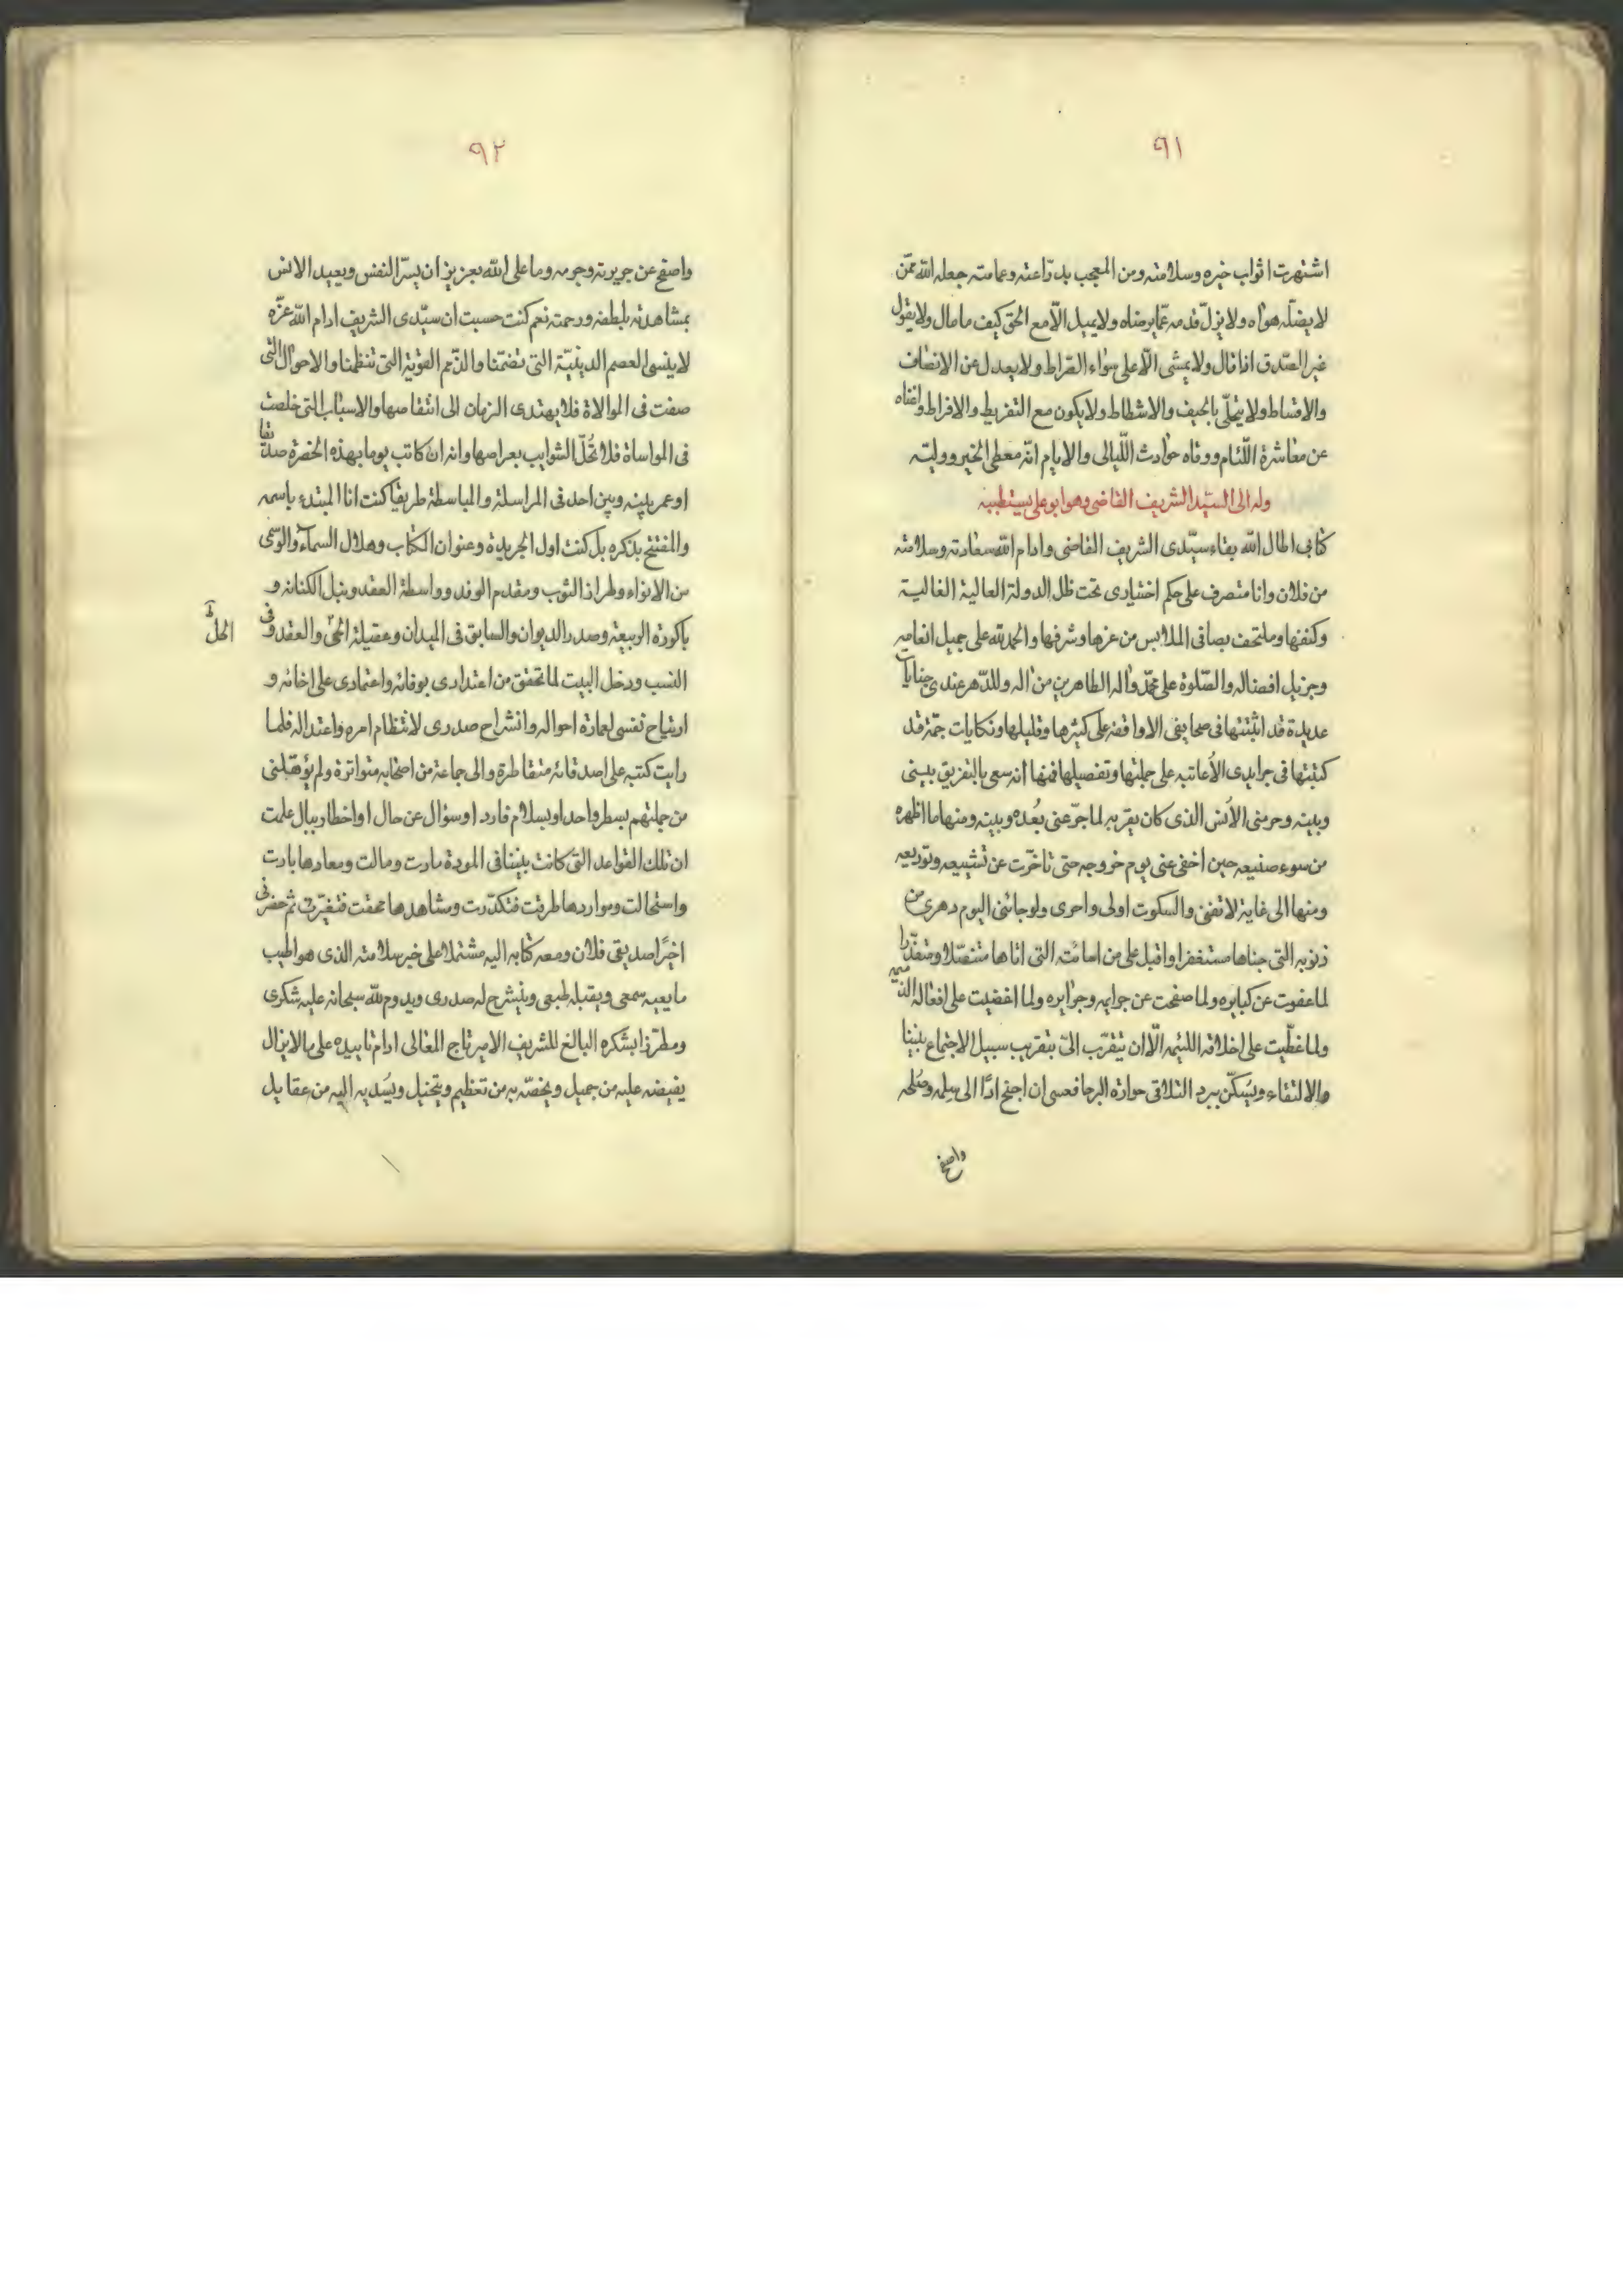 ٩١
اشتهرت اثواب خيره وسلامته ومن المعجب بدرّاعته وعمامته جعله الله ممّن
لا يضلّه هواه ولا يزلّ قدمه عمّا يرضاه ولا يميل الّا مع الحق كيف ما مال ولا يقول
غير الصّدق اذا قال ولا يمشى الّا على سواء الصّراط ولا يعدل عن الانصاف
والاقساط ولا يتحلّى بالحيف والاشطاط ولا يكون مع التفريط والافراط واغناه
عن معاشرة اللّئام ووقاه حوادث اللّيالى والايام انّه معطى الخير ووليّه
وله الى السّيد الشريف القاضى وهو ابو على يستطيبه
كتابى اطال الله بقاء سيّدى الشريف القاضى وادام الله سعادته وسلامته
من فلان وانا متصرف على حكم اختيارى تحت ظل الدولة العالية الغالية
وكنفها وملتحف بصافى الملابس من عزها وشرفها والحمد لله على جميل انعامه
وجزيل افضاله والصّلوة على محمّد وآله الطاهرين من آله وللدّهر عندى جنايات
عديدة قد اثبتتها فى صحايفى الاواقفه على كثيرها وقليلها ونكايات جمّة قد
كتبتها فى جرايدى الأعاتبه على جملتها وتفصيلها فمنها انه سعى بالتفريق بينى
وبينه وحرمنى الأنس الذى كان بقربه لما جرّعنى بُعده وبينه ومنها ما اظهره
من سوء صنيعه حين اخفى عنى يوم خروجه حتى تاخّرت عن تشييعه وتوديعه
ومنها الى غاية لا تفنى والسكوت اولى واحرى ولو جائنى اليوم دهرى من
ذنوبه التى جناها مستغفرا واقبل على من اسائته التى اتاها متنصّلا ومتعذّرا
لما عفوت عن كبايره ولما صفحت عن جرايمه وجرايره ولما اغضيت على افعاله الذميمه
ولما غطّيت على اخلاقه اللئيمه الّا ان يتقرّب الىّ بتقريب سبيل الاجتماع بيننا
والالتقاء ويسكّن ببرد التلاقى حرارة البرحا فعسى ان اجنح اذًا الى سلمه وصُلحه
واصفح
٩٢
واصفح عن جريرته وجرمه وما على الله بعزيز ان يسرّ النفس ويعيد الانس
بمشاهدته بلطفه ورحمته نعم كنت حسبت ان سيّدى الشريف ادام الله عزّه
لا ينسى العصم الدينيّة التى تضمّنا والذّمم القويّة التى تنظمنا والاحوال التى
صفت فى الموالاة فلا يهتدى الزمان الى انتقاصها والاسباب التى خلصت
فى المواساة فلا تحُلّ الشوايب بعراصها وانه ان كاتب يوما بهذه الحضرة صديقا
او عمر بينه وبين احد فى المراسلة والمباسطة طريقا كنت انا المبتدء باسمه
والمفتتح بذكره بل كنت اول الجريدة وعنوان الكتاب وهلال السماء والوسمى
من الانواء وطراز الثوب ومقدم الوفد وواسطة العقد ونبل الكنانه و
باكورة الربيعة وصدر الديوان والسابق فى الميدان وعقيلة الحىّ والعقد وفى
الحلّ
النسب ودخل البيت لما تحقق من اعتدادى بوفائه واعتمادى على اخائه و
ارتياح نفسى لعمارة احواله وانشراح صدرى لانتظام امره واعتداله فلما
رايت كتبه على اصدقائه متقاطرة والى جماعة من اصحابه متواترة ولم يؤهّلنى
من جملتهم بسطر واحد او بسلام فارد او سؤال عن حال او اخطار ببال علمت
ان تلك القواعد التى كانت بيننا فى المودة مادت ومالت ومعادها بادت
واستحالت ومواردها طرقت فتكدّرت ومشاهدها محقت فتغيّرت ثم حضرنى
اخيرًا صديقى فلان ومعه كتابه اليه مشتملا على خبر سلامته الذى هو اطيب
ما يعيه سمعى ويقبله طبعى وينشرح له صدرى ويدوم لله سبحانه عليه شكرى
ومطرّزا بشكره البالغ للشريف الامير تاج المعالى ادام تاييده على ما لا يزال
يفيضه عليه من جميل ويخصّه به من تعظيم وتبجيل ويُسديه اليه من عقايل